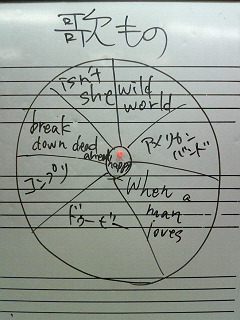 歌もの
isn't
she
wild
world
break
down dead
already
happy
アメリカン
バンド
コンプリ
When
a
man
loves
ドゥービー